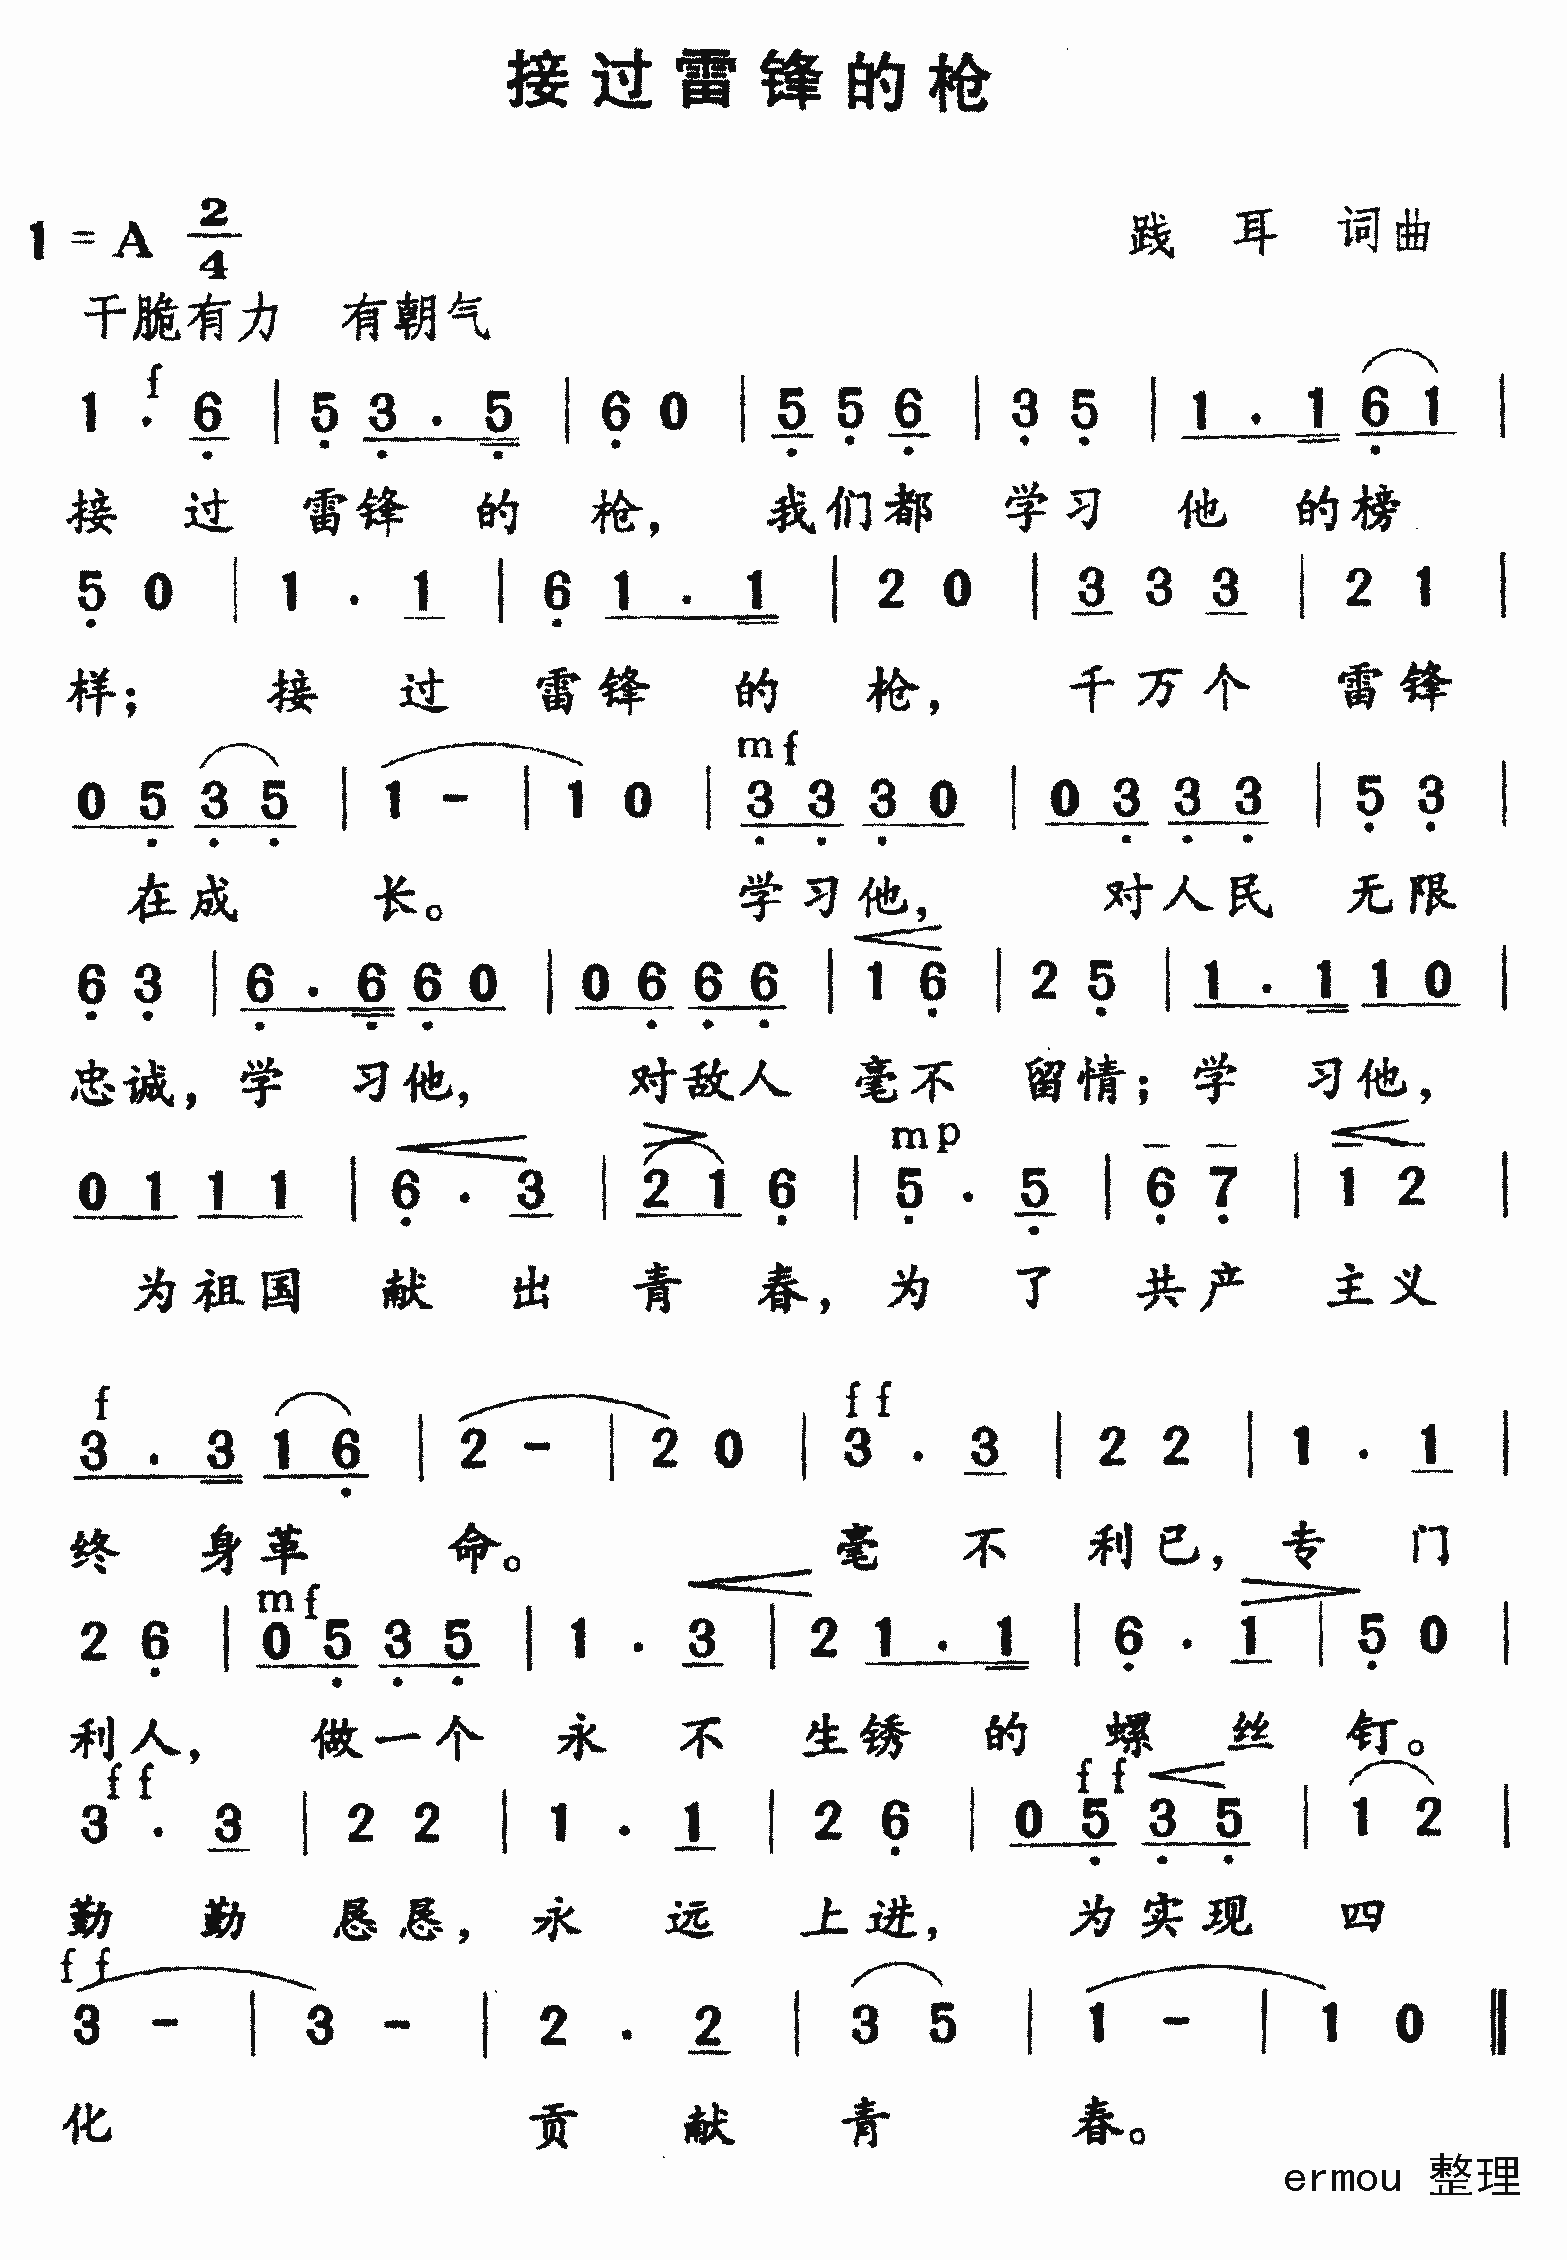 接过雷锋的枪
1 = A 2/4
践 耳 词曲
干脆有力 有朝气
f
1 . 6 | 5 3 . 5 | 6 0 | 5 5 6 | 3 5 | 1 . 1 6 1 |
接 过 雷锋 的 枪， 我们都 学习 他 的榜
5 0 | 1 . 1 | 6 1 . 1 | 2 0 | 3 3 3 | 2 1 |
样； 接 过 雷锋 的 枪， 千万个 雷锋
mf
0 5 3 5 | 1 - | 1 0 | 3 3 3 0 | 0 3 3 3 | 5 3 |
在成 长。 学习他， 对人民 无限
6 3 | 6 . 6 6 0 | 0 6 6 6 | 1 6 | 2 5 | 1 . 1 1 0 |
忠诚，学 习他， 对敌人 毫不 留情；学 习他，
mp
0 1 1 1 | 6 . 3 | 2 1 6 | 5 . 5 | 6 7 | 1 2 |
为祖国 献 出 青 春，为 了 共产 主义
f ff
3 . 3 1 6 | 2 - | 2 0 | 3 . 3 | 2 2 | 1 . 1 |
终 身革 命。 毫 不 利已，专 门
mf
2 6 | 0 5 3 5 | 1 . 3 | 2 1 . 1 | 6 . 1 | 5 0 |
利人， 做一个 永 不 生锈 的 螺 丝 钉。
ff ff
3 . 3 | 2 2 | 1 . 1 | 2 6 | 0 5 3 5 | 1 2 |
勤 勤 恳恳，永 远 上进， 为实现 四
ff
3 - | 3 - | 2 . 2 | 3 5 | 1 - | 1 0 ‖
化 贡 献 青 春。
ermou 整理